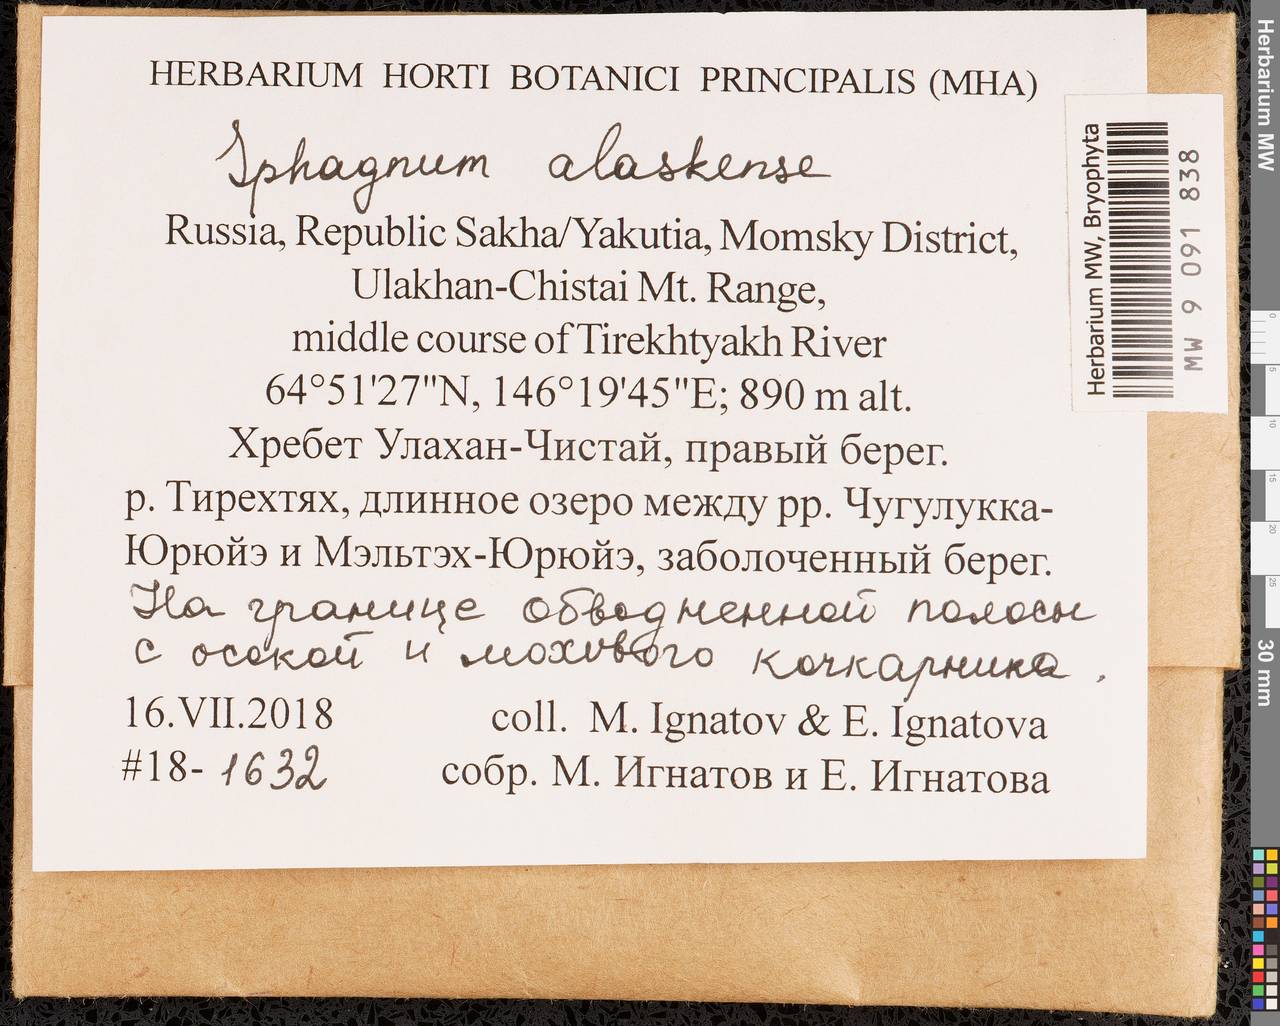 HERBARIUM HORTI BOTANICI PRINCIPALIS (MHA)
Sphagnum alaskense
Russia, Republic Sakha/Yakutia, Momsky District,
Ulakhan-Chistai Mt. Range,
middle course of Tirekhtyakh River
64°51'27"N, 146°19'45"E; 890 m alt.
Хребет Улахан-Чистай, правый берег.
р. Тирехтях, длинное озеро между рр. Чугулукка-
Юрюйэ и Мэльтэх-Юрюйэ, заболоченный берег.
На границе обводненной полосы
с осокой и мохового кочкарника.
16.VII.2018 coll. M. Ignatov & E. Ignatova
#18-1632 собр. М. Игнатов и Е. Игнатова
Herbarium MW, Bryophyta
MW 9 091 838
Herbarium MW
0
5
10
15
20
25
30 mm